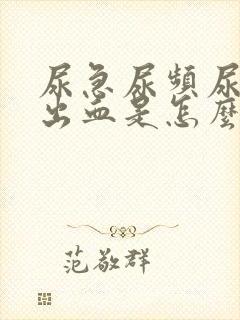 尿急尿頻尿
出血是怎麼
范敬群